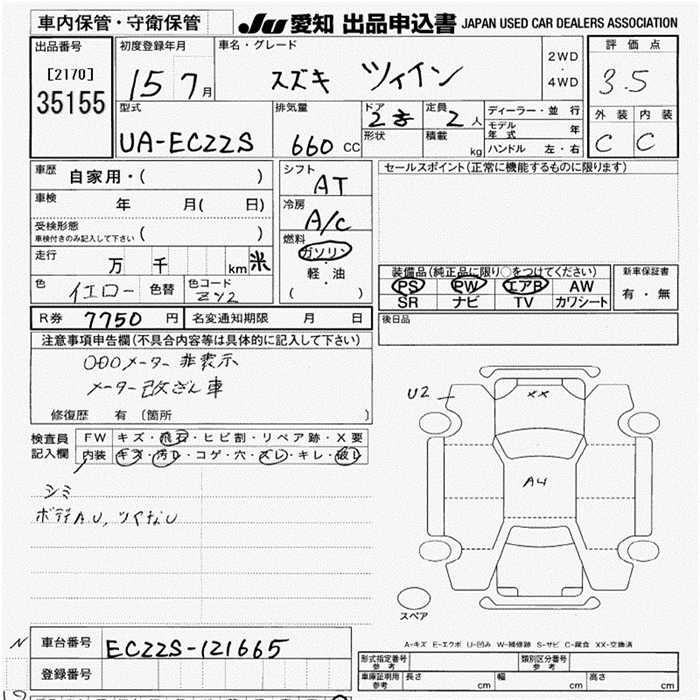 車内保管・守衛保管
JU 愛知 出品申込書 JAPAN USED CAR DEALERS ASSOCIATION
出品番号
[2170]
35155
初度登録年月
15 7月
車名・グレード
スズキ ツイン
2WD
・
4WD
評価点
3.5
外装 内装
C C
型式
UA-EC22S
排気量
660 CC
ドア
2
形状
定員
2人
積載
kg
ディーラー・並行
モデル年式 年
ハンドル 左・右
車歴 自家用・( )
車検 年 月( 日)
受検形態
車検付きのみ記入して下さい ( )
走行 万 千 km 米
色 イエロー 色替 色コード ZY2
シフト
AT
冷房
A/C
燃料
ガソリン
・
軽油
( )
セールスポイント(正常に機能するものに限ります)
装備品(純正品に限り○をつけてください)
PS PW エアB AW
SR ナビ TV カワシート
新車保証書
有・無
後日品
R券 7750 円 名変通知期限 月 日
注意事項申告欄(不具合内容等は具体的に記入して下さい)
ODOメーター非表示
メーター改ざん車
修復歴 有 (箇所 )
検査員記入欄
FW キズ・飛石・ヒビ割・リペア跡・X要
内装 キズ・汚レ・コゲ・穴・スレ・キレ・破レ
シミ
ボディAU、
U2
XX
A4
スペア
A-キズ E-エクボ U-凹み W-補修跡 S-サビ C-腐食 XX-交換済
N
車台番号 EC22S-121665
登録番号
型式指定番号
参考
類別区分番号
参考
車庫証明用
参考
長さ cm 幅 cm 高さ cm